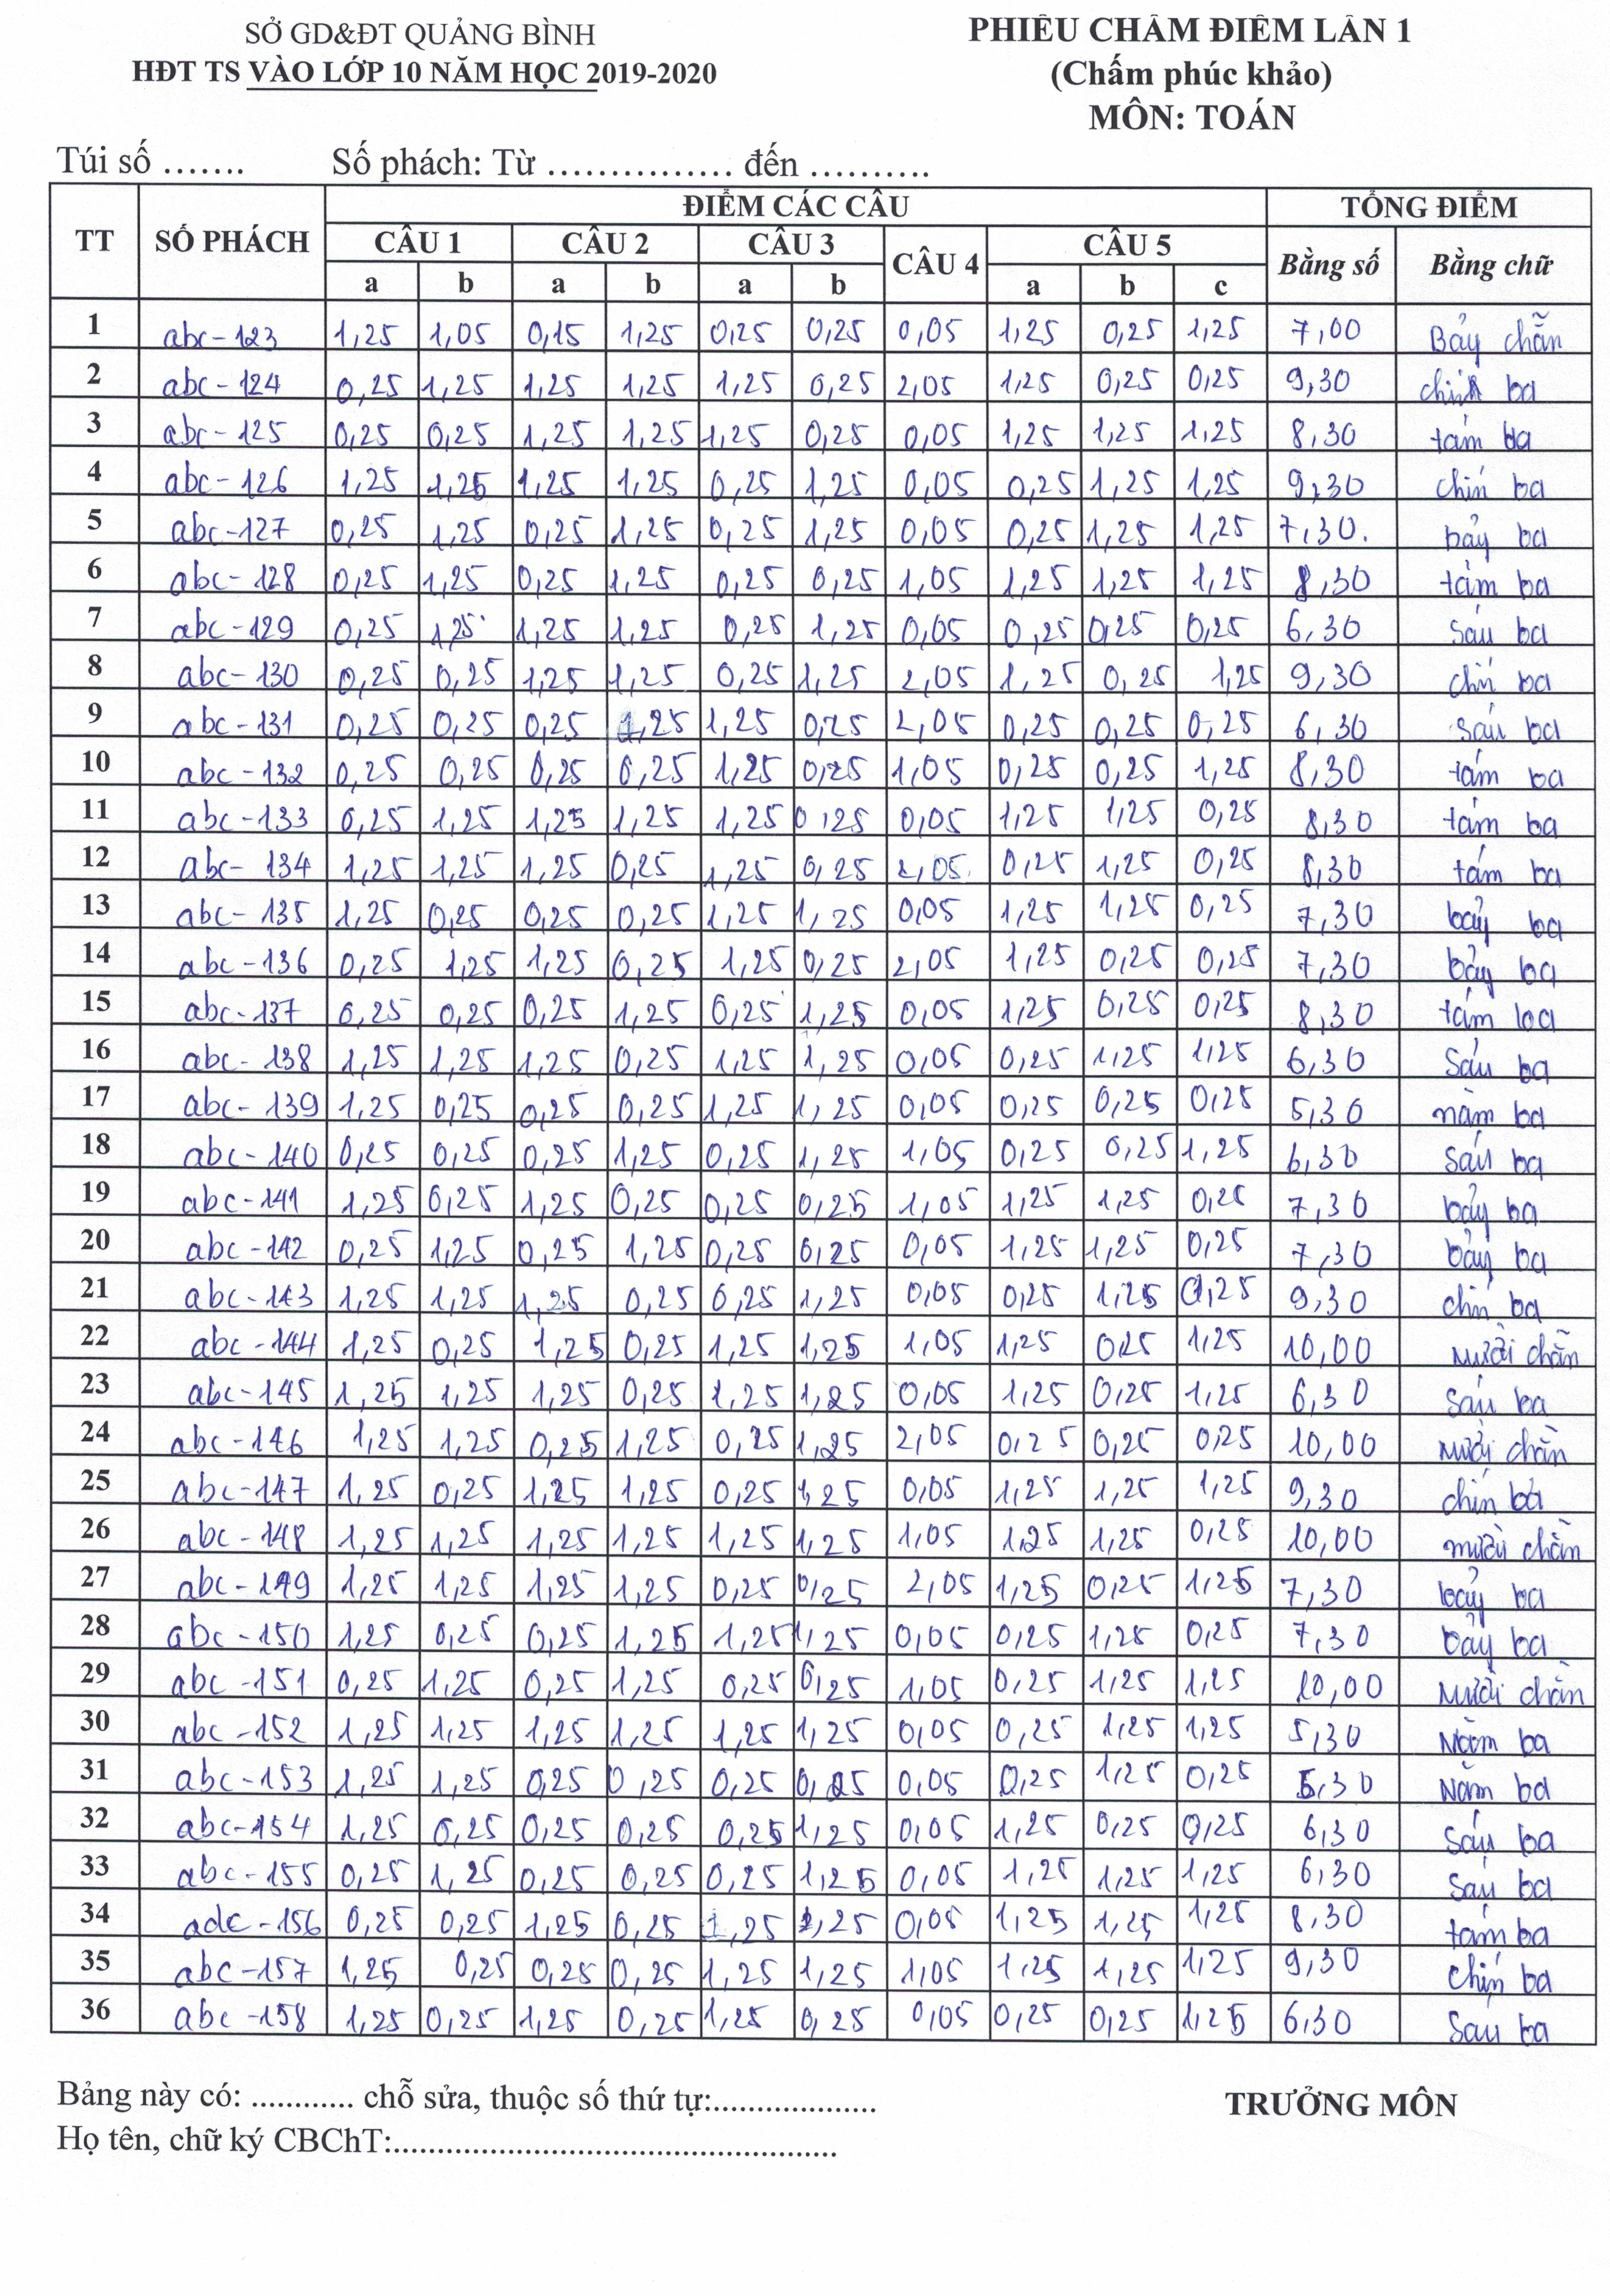 SỞ GD&ĐT QUẢNG BÌNH
HĐT TS VÀO LỚP 10 NĂM HỌC 2019-2020
PHIẾU CHẤM ĐIỂM LẦN 1
(Chấm phúc khảo)
MÔN: TOÁN
Túi số ....... Số phách: Từ ............... đến ..........
TT SỐ PHÁCH ĐIỂM CÁC CÂU TỔNG ĐIỂM
CÂU 1 CÂU 2 CÂU 3 CÂU 4 CÂU 5 Bằng số Bằng chữ
a b a b a b a b c
1 abc-123 1,25 1,05 0,15 1,25 0,25 0,25 0,05 1,25 0,25 1,25 7,00 Bảy chẵn
2 abc-124 0,25 1,25 1,25 1,25 1,25 0,25 2,05 1,25 0,25 0,25 9,30 chín ba
3 abc-125 0,25 0,25 1,25 1,25 1,25 0,25 0,05 1,25 1,25 1,25 8,30 tám ba
4 abc-126 1,25 1,25 1,25 1,25 0,25 1,25 0,05 0,25 1,25 1,25 9,30 chín ba
5 abc-127 0,25 1,25 0,25 1,25 0,25 1,25 0,05 0,25 1,25 1,25 7,30. bảy ba
6 abc-128 0,25 1,25 0,25 1,25 0,25 0,25 1,05 1,25 1,25 1,25 8,30 tám ba
7 abc-129 0,25 1,25 1,25 1,25 0,25 1,25 0,05 0,25 0,25 0,25 6,30 sáu ba
8 abc-130 0,25 0,25 1,25 1,25 0,25 1,25 2,05 1,25 0,25 1,25 9,30 chín ba
9 abc-131 0,25 0,25 0,25 1,25 1,25 0,25 2,05 0,25 0,25 0,25 6,30 sáu ba
10 abc-132 0,25 0,25 0,25 0,25 1,25 0,25 1,05 0,25 0,25 1,25 8,30 tám ba
11 abc-133 0,25 1,25 1,25 1,25 1,25 0,25 0,05 1,25 1,25 0,25 8,30 tám ba
12 abc-134 1,25 1,25 1,25 0,25 1,25 0,25 2,05 0,25 1,25 0,25 8,30 tám ba
13 abc-135 1,25 0,25 0,25 0,25 1,25 1,25 0,05 1,25 1,25 0,25 7,30 bảy ba
14 abc-136 0,25 1,25 1,25 0,25 1,25 0,25 2,05 1,25 0,25 0,25 7,30 bảy ba
15 abc-137 0,25 0,25 0,25 1,25 0,25 1,25 0,05 1,25 0,25 0,25 8,30 tám ba
16 abc-138 1,25 1,25 1,25 0,25 1,25 1,25 0,05 0,25 1,25 1,25 6,30 sáu ba
17 abc-139 1,25 0,25 0,25 0,25 1,25 1,25 0,05 0,25 0,25 0,25 5,30 năm ba
18 abc-140 0,25 0,25 0,25 1,25 0,25 1,25 1,05 0,25 0,25 1,25 6,30 sáu ba
19 abc-141 1,25 0,25 1,25 0,25 0,25 0,25 1,05 1,25 1,25 0,25 7,30 bảy ba
20 abc-142 0,25 1,25 0,25 1,25 0,25 0,25 0,05 1,25 1,25 0,25 7,30 bảy ba
21 abc-143 1,25 1,25 1,25 0,25 0,25 1,25 0,05 0,25 1,25 0,25 9,30 chín ba
22 abc-144 1,25 0,25 1,25 0,25 1,25 1,25 1,05 1,25 0,25 1,25 10,00 Mười chẵn
23 abc-145 1,25 1,25 1,25 0,25 1,25 1,25 0,05 1,25 0,25 1,25 6,30 sáu ba
24 abc-146 1,25 1,25 0,25 1,25 0,25 1,25 2,05 0,25 0,25 0,25 10,00 Mười chẵn
25 abc-147 1,25 0,25 1,25 1,25 0,25 1,25 0,05 1,25 1,25 1,25 9,30 chín ba
26 abc-148 1,25 1,25 1,25 1,25 1,25 1,25 1,05 1,25 1,25 0,25 10,00 mười chẵn
27 abc-149 1,25 1,25 1,25 1,25 0,25 0,25 2,05 1,25 0,25 1,25 7,30 bảy ba
28 abc-150 1,25 0,25 0,25 1,25 1,25 1,25 0,05 0,25 1,25 0,25 7,30 bảy ba
29 abc-151 0,25 1,25 0,25 1,25 0,25 0,25 1,05 0,25 1,25 1,25 10,00 Mười chẵn
30 abc-152 1,25 1,25 1,25 1,25 1,25 1,25 0,05 0,25 1,25 1,25 5,30 Năm ba
31 abc-153 1,25 1,25 0,25 0,25 0,25 0,25 0,05 0,25 1,25 0,25 5,30 Năm ba
32 abc-154 1,25 0,25 0,25 0,25 0,25 1,25 0,05 1,25 0,25 0,25 6,30 sáu ba
33 abc-155 0,25 1,25 0,25 0,25 0,25 1,25 0,05 1,25 1,25 1,25 6,30 Sáu ba
34 adc-156 0,25 0,25 1,25 0,25 1,25 1,25 0,05 1,25 1,25 1,25 8,30 tám ba
35 abc-157 1,25 0,25 0,25 0,25 1,25 1,25 1,05 1,25 1,25 1,25 9,30 Chín ba
36 abc-158 1,25 0,25 1,25 0,25 1,25 0,25 0,05 0,25 0,25 1,25 6,30 Sáu ba
Bảng này có: ............ chỗ sửa, thuộc số thứ tự:...................
TRƯỞNG MÔN
Họ tên, chữ ký CBChT:.....................................................